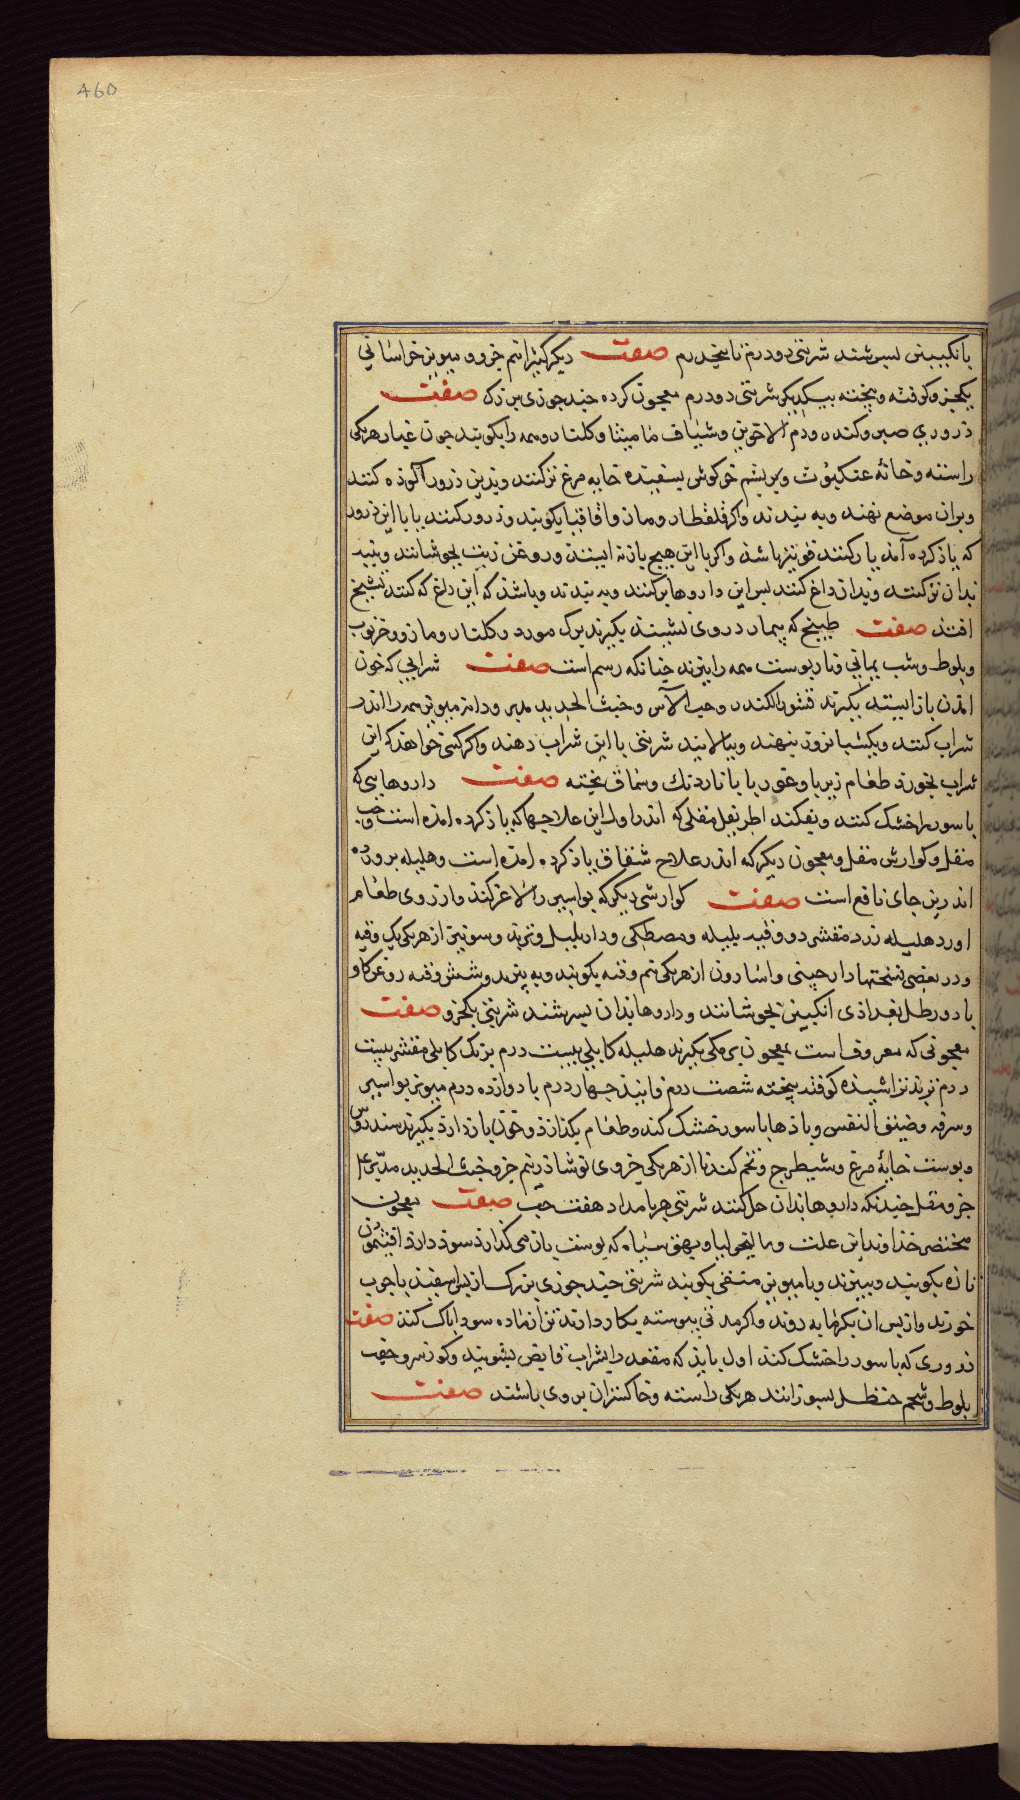 460
بانکیبین بسرشند شربتی دو درم تا پنجدرم صفت دیکر کثیرا نیم جزو و میویز خراسانی
یکجزو کوفته و پخته بیکدیکر شربتی دو درم معجون کرده چند جوزی بزرک صفت
ذروری صبر و کندر و دم الاخوین و شیاف مامیثا و کلنار و همه را بکوبند چون غبار هریکی
راسته و خانهٔ عنکبوت و پریشم خرکوش بسفیده خایه مرغ تر کنند و بدین ذرور آکوذه کنند
و بران موضع نهند و به بندند واکر قلقطار و مازو اقاقیا بکوبند و ذرور کنند یا با این ذرور
که یاذ کرده آمذ یار کنند قوی‌تر باشذ واکر با این هیچ بازنه ایستذ روغن زیت بجوشانند و پنبه
بدان تر کنند و بدان داغ کنند پس این داروها بر کنند و به بندند و باشذ که این داغ که کنند تشنج
افتذ صفت طبیخ که بیمار در وی نشیند بکیرند برک مورد و کلنار و مازو و خرنوب
و بلوط و شب یمانی و نار پوست همه را بپزند چنانکه رسم است صفت شرابی که خون
امذن باز ایستذ بکیرند قشور الکندر و حب الآس و خبث الحدید مدبر و دانه میویز همه را اندر
شراب کنند و یکشبانروز بنهند و بپالایند شربتی با این شراب دهند واکر کسی خواهذ که این
شراب بخورذ طعام زیرباو غوربا با ناردنک و سماق پخته صفت داروهایی که
باسور را خشک کنند و بفکند اطریفل مقلی که اندر اول این علاجها که یاذ کرده امذه است و حب
مقل و کوارش مقل و معجون دیکر که اندر علاج شقاق یاذ کرده امذه است و هلیله پرورده
اندرین جای نافع است صفت کوارشی دیکر که بواسیر را لاغر کنذ و ارزوی طعام
اورد هلیله زرد مقشر دو وقیه بلیله و مصطکی و دار بلبل و تربد و سونیز از هریکی یک وقیه
و در بعضی نسختها دارچینی و اسارون از هریکی نیم وقیه بکوبند و به بیزند و شش وقیه روغن کاو
با دو رطل بغداذی انکبین بجوشانند و داروها بذان بسرشند شربتی یکجزو صفت
معجونی که معروف است بمعجون برمکی بکیرند هلیله کابلی بیست درم برنک کابلی مقشر بیست
درم تربد تراشیذه کوفته بیخته شصت درم فانیذ چهار درم با دوازده درم میویز بواسیر
و سرفه و ضیق النفس و باذها باسور خشک کند و طعام بکذارذ و خون بازدارذ بکیرند سندروس
و پوست خایهٔ مرغ و شیطرج و تخم کندنا از هریکی جزوی نوشاذر نیم جزو خبث الحدید مدبر ۴
جزو مقل چندانکه داروها بذان حل کنند شربتی هر بامداد هفت حب صفت معجون
مختصر خذاوند این علت و مالیخولیا و بهق سیاه که پوست باز می‌کذارذ سوذ دارذ افتیمون
تازه بکوبند و ببیزند و با میویز منقی بکوبند شربتی چند جوزی بزرک از پس اسفند باجوب
خورند و از پس ان بکرمابه روند واکر مدتی پیوسته بکار دارند تن از ماده سودا پاک کنذ صفت
ذروری که باسور را خشک کنذ اول بایذ که مقعد را بشراب قابض بشویند و کوز سرو و جفت
بلوط و شحم حنظل بسوزانند هریکی راسته و خاکستر ان بر وی باشند صفت